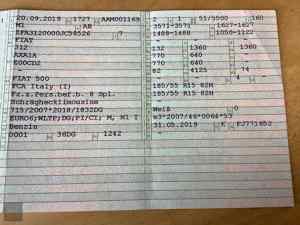 20.09.2019 1727 AAM001169
M1 AB
ZFA3120000JC58526 7
FIAT
312
AXA1A
E00CD2
-
FIAT 500
FCA Italy (I)
Fz.z.Pers.bef.b. 8 Spl.
Schräghecklimousine
715/2007*2018/1832DG
EURO6;WLTP;DG;PI/CI; M, N1 I
Benzin
0001 36DG 1242
2 1 51/5500 160
3571-3571 1627-1627
1488-1488 1050-1122
- - -
132 1360 1360
770 640 -
770 640 -
82 4125 74
- -
185/55 R15 82H
185/55 R15 82H
-
Weiß 0
e3*2007/46*0064*53
31.05.2019 K